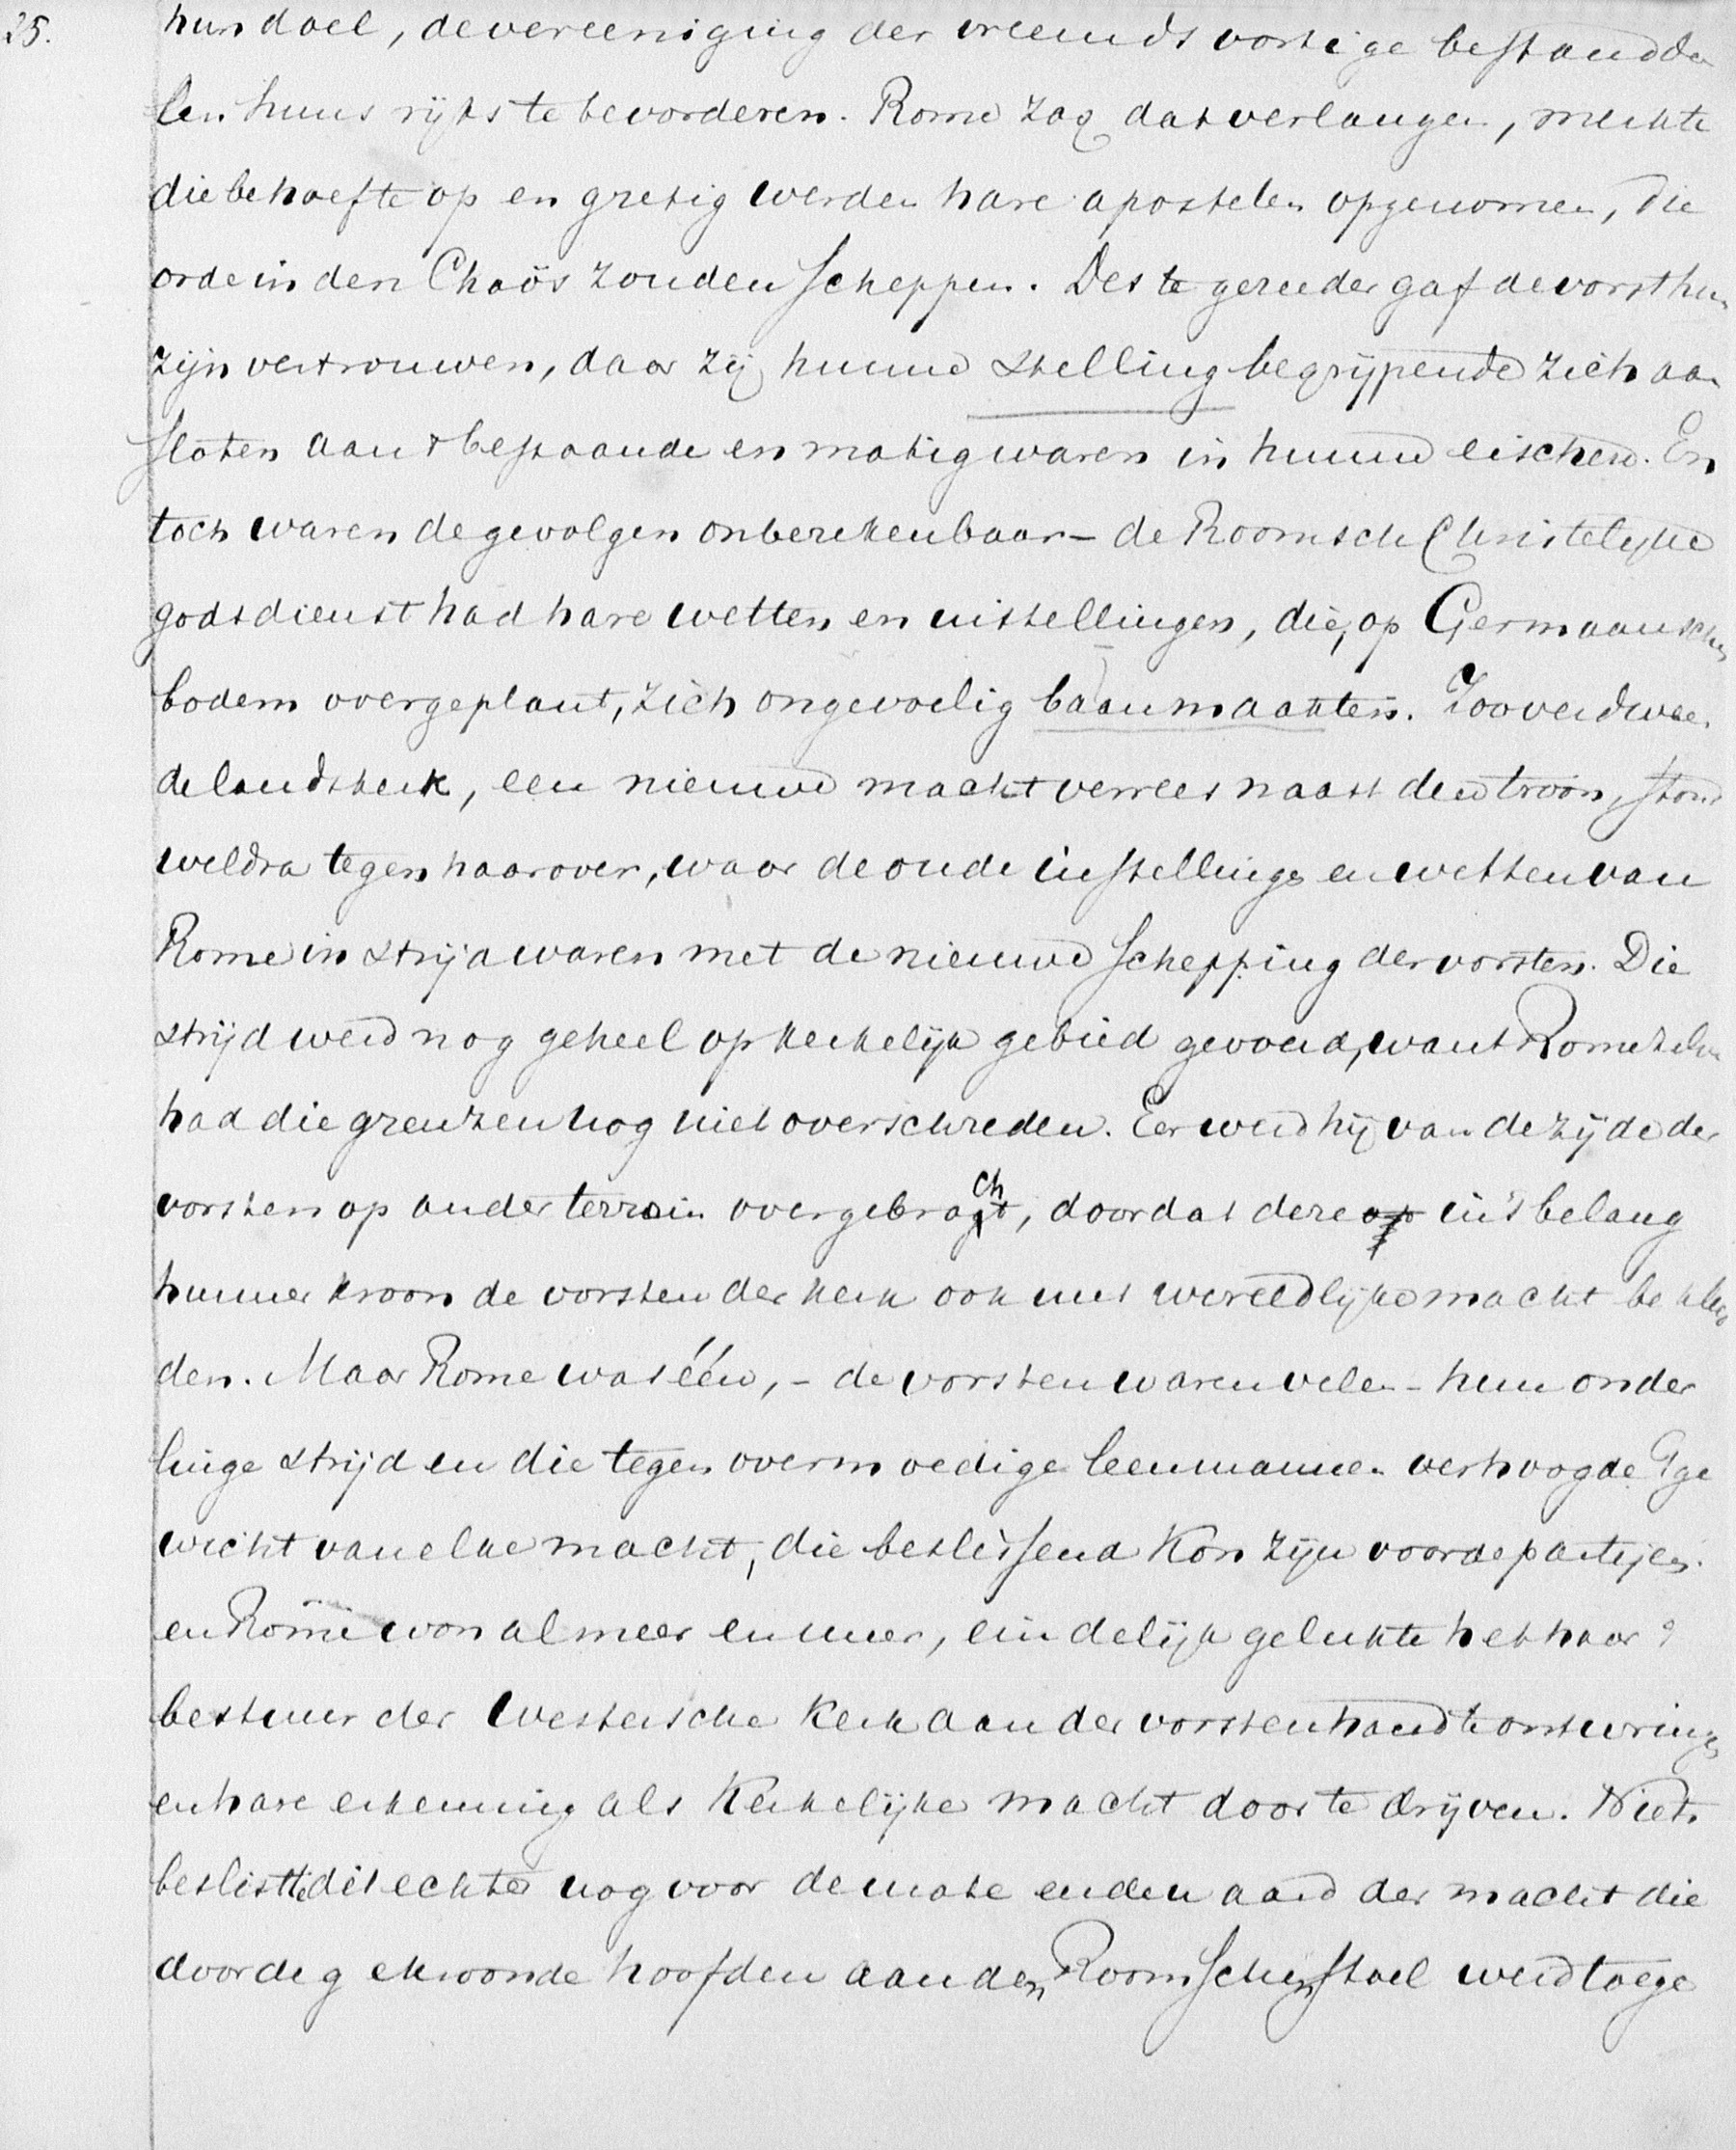 25.
hun doel, de vereeniging der vreemdsoortige bestandde
len huns rijks te bevorderen. Rome zag dat verlangen, merkte
die behoefte op en gretig werden hare apostelen opgenomen, die
orde in den Chaös zouden scheppen. Des te gereeder gaf de vorst hun
zijn vertrouwen, daar zij hunne stelling begrijpende zich aan
sloten aan 't bestaande en matig waren in hunne eischen. En
toch waren de gevolgen onberekenbaar - de Roomsch Christelijke
godsdienst had hare wetten en instellingen, die, op Germaanschen
bodem overgeplant, zich ongevoelig baan maakten. Zoo verdween
de landskerk, een nieuwe macht verrees naast den troon, stond
weldra tegen haar over, waar de oude instellings en wetten van
Rome in strijd waren met de nieuwe schepping der vorsten. Die
strijd werd nog geheel op kerkelijk gebied gevoerd, want Rome zelve
had die grenzen nog niet overschreden. Eer werd hij van de zijde der
vorsten op ander terrein overgebracht, doordat deze op in 't belang
hunner kroon de vorsten der kerk ook met wereldlijke macht beklee
den. Maar Rome was één, - de vorsten waren velen - hun onder
linge strijd en die tegen overmoedige leenmannen verhoogde 't ge
wicht van elke macht, die beslissend kon zijn voor de partijen.
en Rome won al meer en meer, eindelijk gelukte het haar 't
bestuur der Westersche Kerk aan der vorsten hand te ontwringen
en hare erkenning als Kerkelijke macht door te drijven. Niets
besliste dit echter nog voor de mate en den aard der macht die
door de gekroonde hoofden aan den Roomschen stoel werd toege